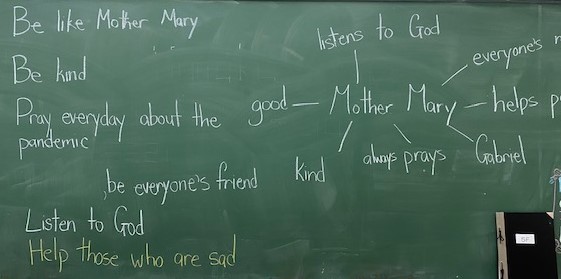 Be like Mother Mary
Be kind
Pray everyday about the
pandemic
be everyone's friend
Listen to God
Help those who are sad
listens to God
everyone's
good
Mother Mary
helps
kind
always prays
Gabriel